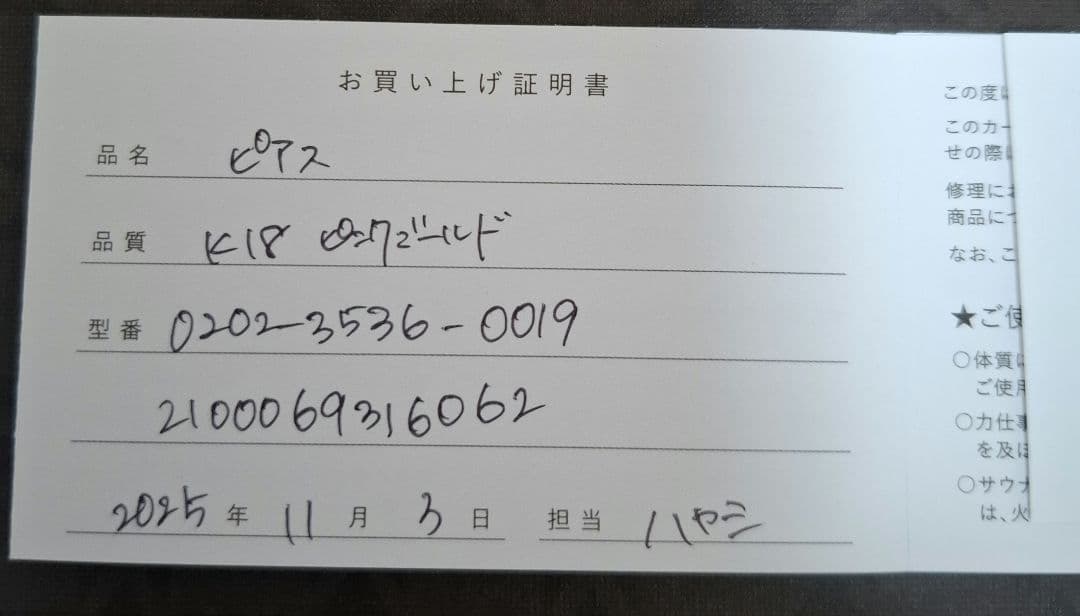 お買い上げ証明書
品名 ピアス
品質 K18 ピンクゴールド
型番 0202-3536-0019
2100069316062
2025年 11月 3日 担当 ハヤシ
この度
このカー
せの際
修理にお
商品につ
なお、こ
★ご使
○体質
ご使用
○力仕事
を及ぼ
○サウナ
は、火